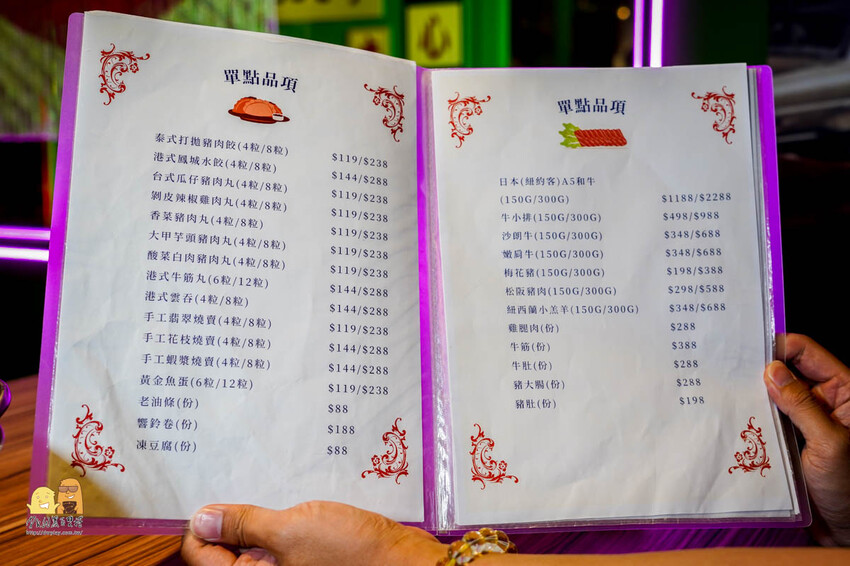 單點品項
泰式打拋豬肉餃(4粒/8粒) $119/$238
港式鳳城水餃(4粒/8粒) $144/$288
台式瓜仔豬肉丸(4粒/8粒) $119/$238
剝皮辣椒雞肉丸(4粒/8粒) $119/$238
香菜豬肉丸(4粒/8粒) $119/$238
大甲芋頭豬肉丸(4粒/8粒) $119/$238
酸菜白肉豬肉丸(4粒/8粒) $119/$238
港式牛筋丸(6粒/12粒) $144/$288
港式雲吞(4粒/8粒) $144/$288
手工翡翠燒賣(4粒/8粒) $119/$238
手工花枝燒賣(4粒/8粒) $144/$288
手工蝦漿燒賣(4粒/8粒) $144/$288
黃金魚蛋(6粒/12粒) $119/$238
老油條(份) $88
響鈴卷(份) $188
凍豆腐(份) $88
單點品項
日本(紐約客)A5和牛
(150G/300G) $1188/$2288
牛小排(150G/300G) $498/$988
沙朗牛(150G/300G) $348/$688
嫩肩牛(150G/300G) $348/$688
梅花豬(150G/300G) $198/$388
松阪豬肉(150G/300G) $298/$588
紐西蘭小羔羊(150G/300G) $348/$688
雞腿肉(份) $288
牛筋(份) $388
牛肚(份) $288
豬大腸(份) $288
豬肚(份) $198